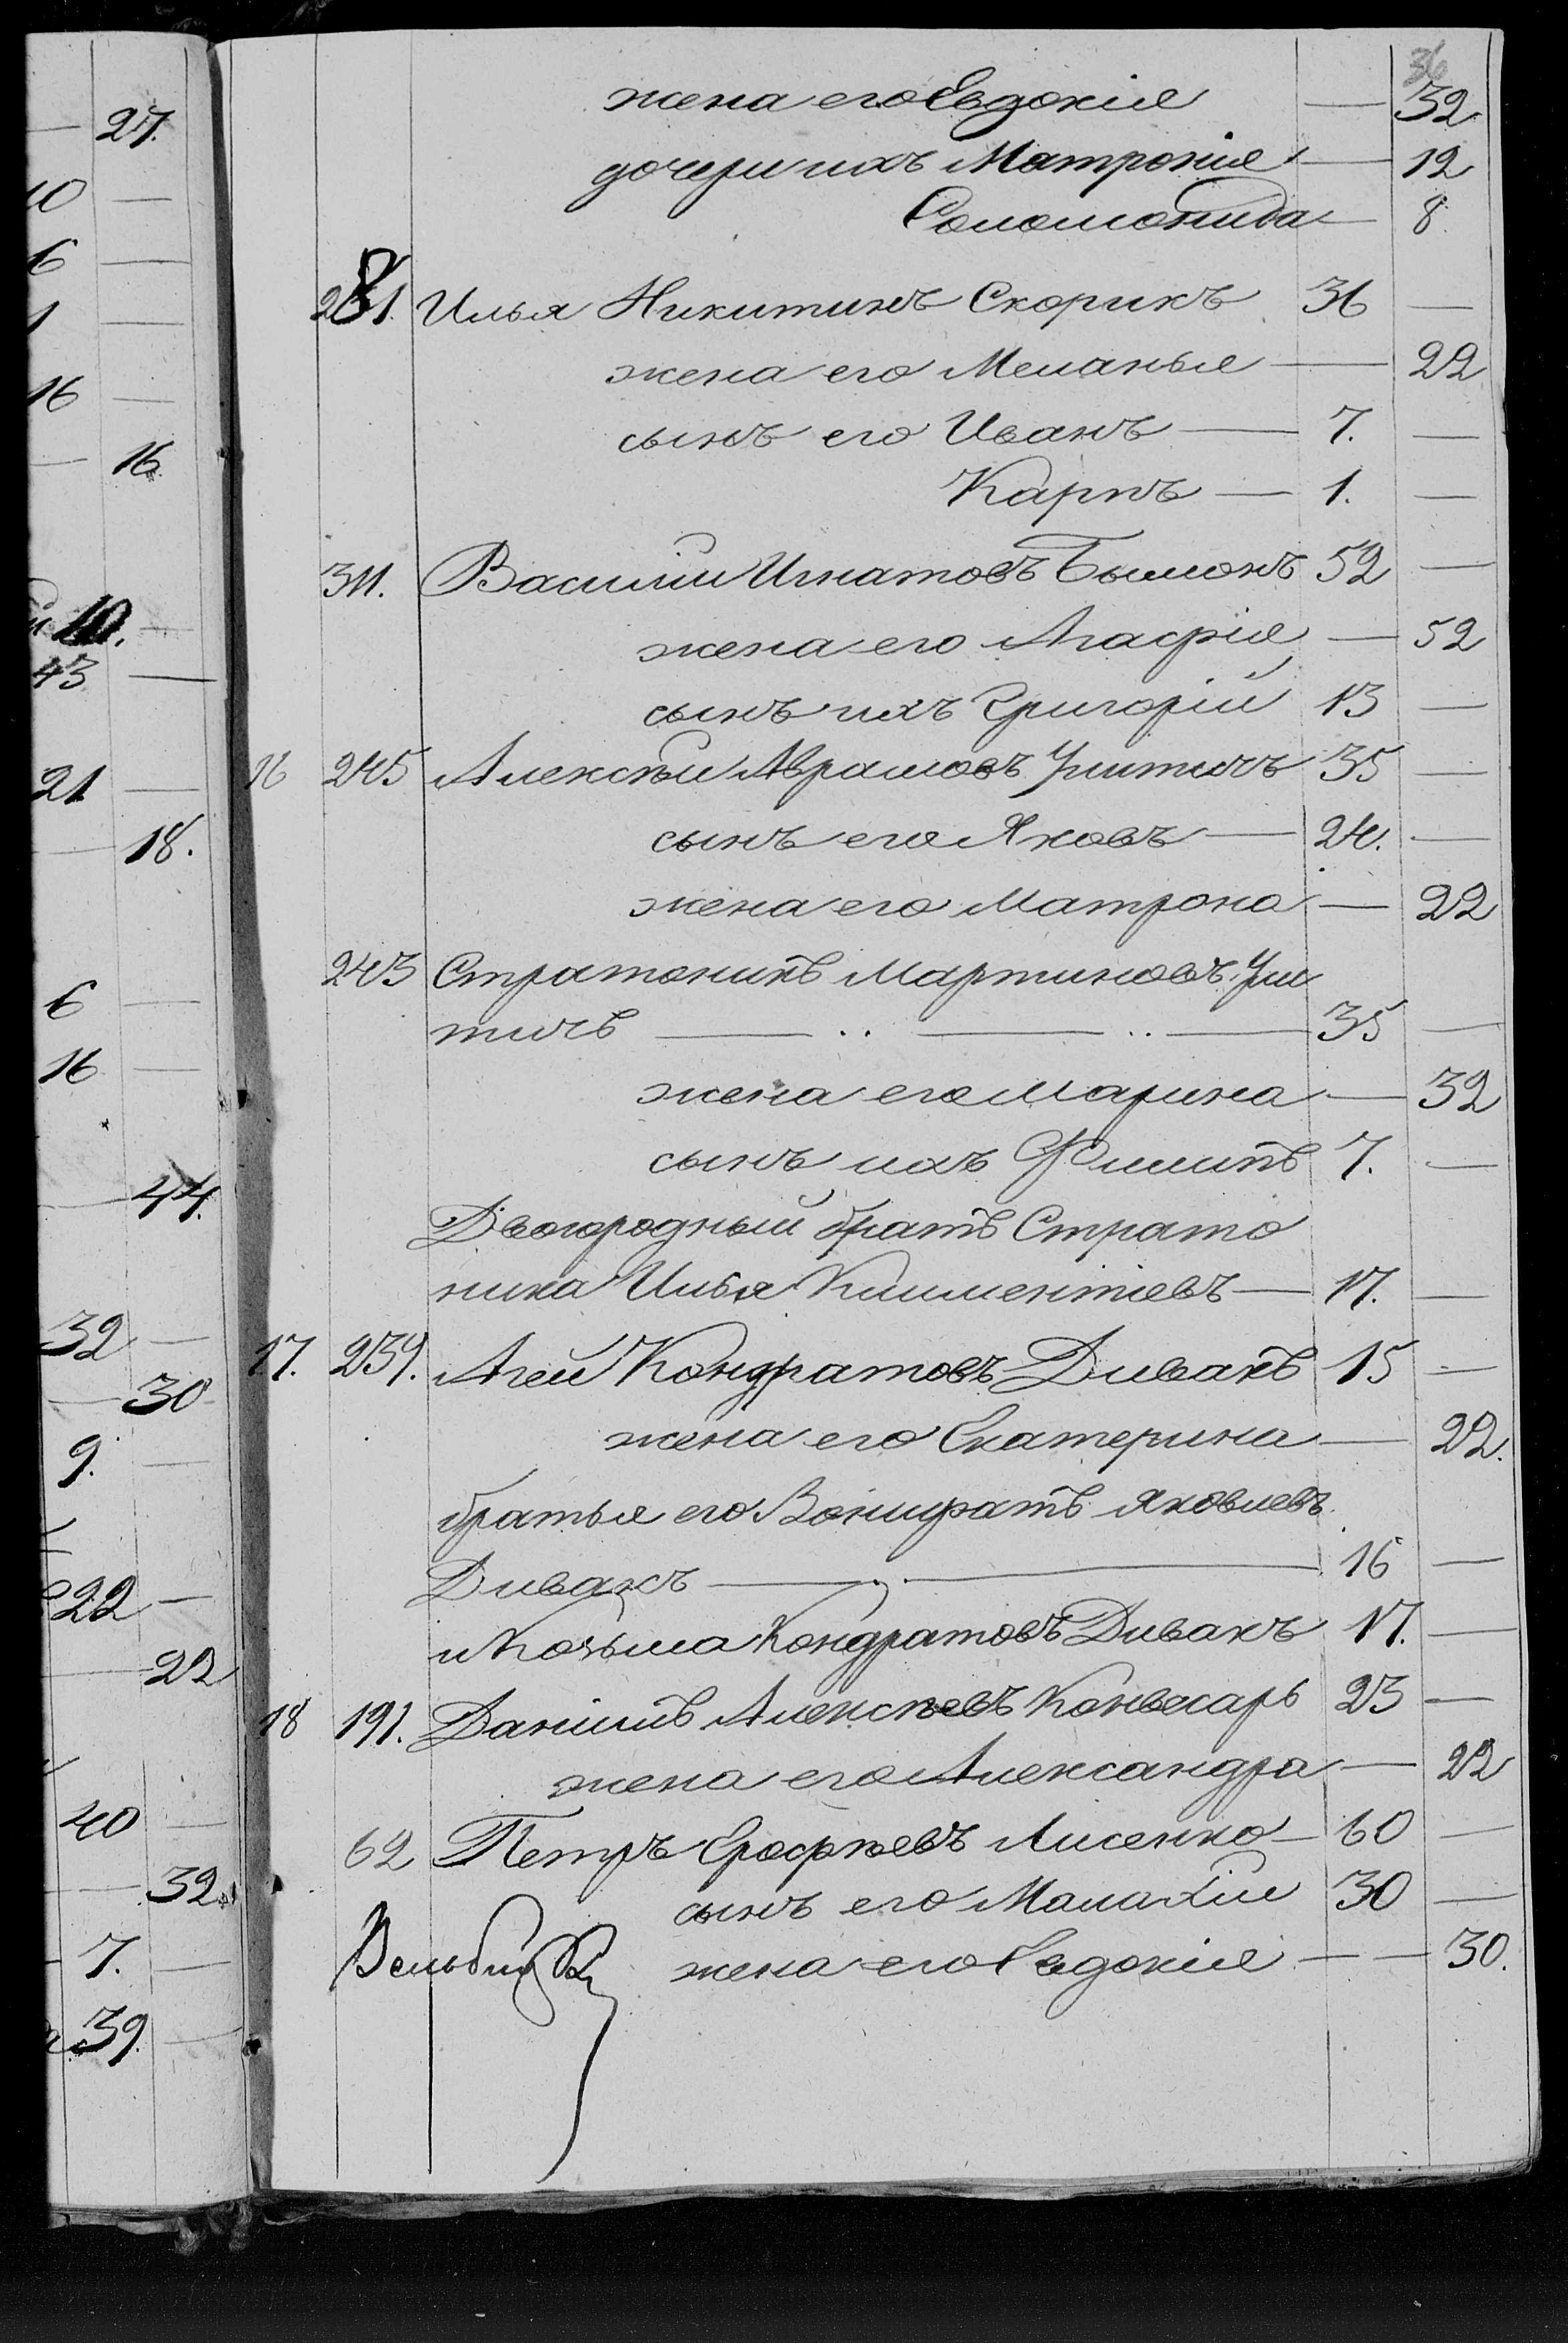 36
жена его Евдокія — 32
дочери ихъ Матронія — 12
Соломонида — 8.
281. Илья Никитинъ Скорикъ 36 —
жена его Меланья — 22
сынъ его Иванъ — 7. —
Карпъ — 1. —
311. Василій Игнатовъ 52 —
жена его Агафія — 52
сынъ ихъ Григорій 13 —
16 245 Алексѣй Аврамовъ Улитичъ 35 —
сынъ его Яковъ — 24. —
жена его Матрона — 22
243 Стратоникъ Мартиновъ Ули
тичъ — .. — .. — 35 —
жена его Марина — 32
сынъ ихъ Филипъ 7. —
Двоюродный братъ Страто
ника Илья Климентіевъ — 17. —
17. 239. Агей Кондратовъ Дивакъ 15 —
жена его Екатерина — 22.
братья его Вонифатъ Яковлевъ
Дивакъ — . — 16 —
и Козьма Кондратовъ Дивакъ 17. —
18 191. Даніилъ Алексѣевъ Конвесарь 23 —
жена его Александра — 22
62 Петръ Ерофѣевъ Лисенко — 60 —
сынъ его Малахій 30 —
жена его Евдокія — — 30.
27.
10 —
6 —
1 —
16 —
— 16.
10. —
43 —
21 —
— 18.
6 —
16 —
— 44.
32 —
— 30
9. —
22 —
— 22
40 —
— 32
7. —
39. —